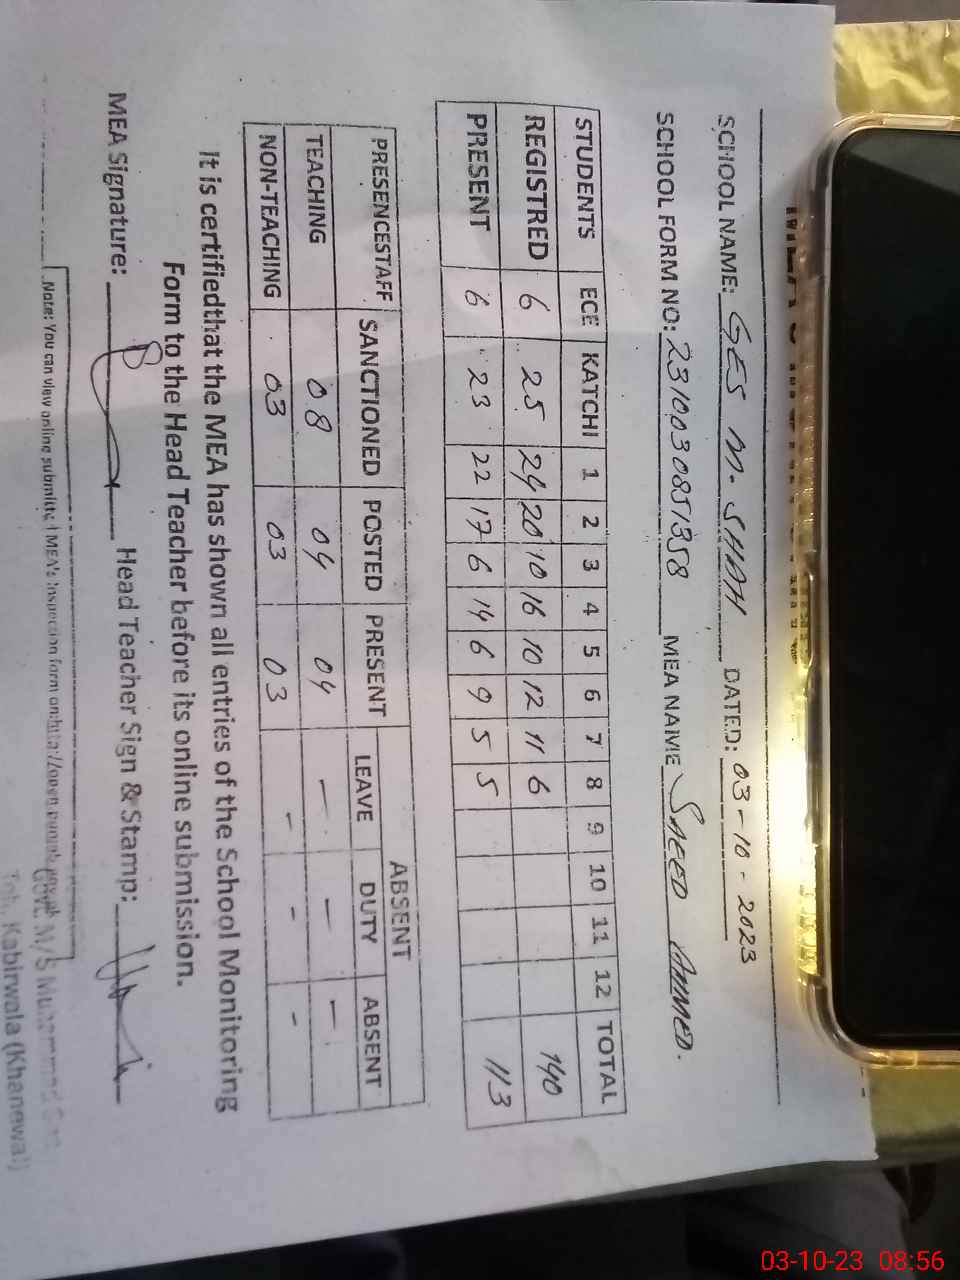 SCHOOL NAME: GES M. SHAH DATED: 03-10-2023
SCHOOL FORM NO: 2310030851358 MEA NAME SAEED AHMED.
STUDENTS ECE KATCHI 1 2 3 4 5 6 7 8 9 10 11 12 TOTAL
REGISTRED 6 25 24 20 10 16 10 12 11 6 140
PRESENT 6 23 22 17 6 14 6 9 5 5 113
PRESENCESTAFF SANCTIONED POSTED PRESENT ABSENT
LEAVE DUTY ABSENT
TEACHING 08 04 04 - - -
NON-TEACHING 03 03 03 - - -
It is certifiedthat the MEA has shown all entries of the School Monitoring
Form to the Head Teacher before its online submission.
MEA Signature: Head Teacher Sign & Stamp:
Note: You can view online submitted MEA's Inspection form on
Govt. M/S
Kabirwala (Khanewal)
03-10-23 08:56